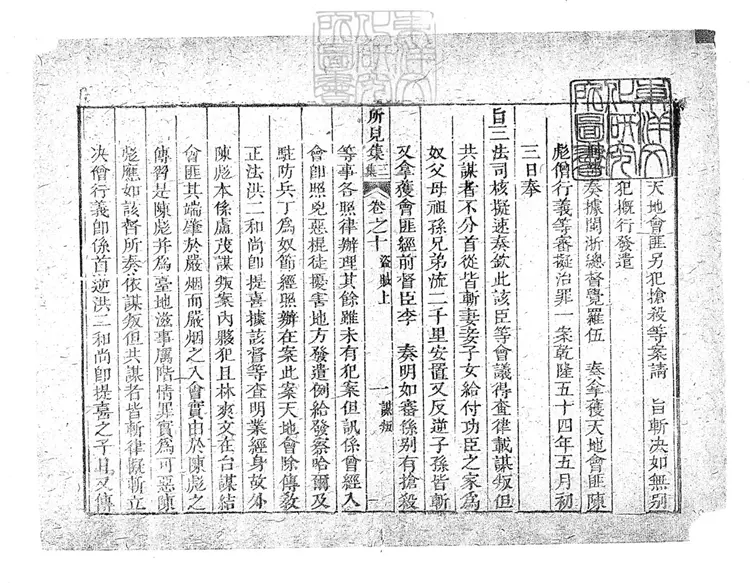 天地會匪另犯搶殺等案請 旨斬决如無別
犯概行發遣
奏據閩浙總督覺羅伍 奏拿獲天地會匪陳
彪僧行義等審擬治罪一案乾隆五十四年五月初
三日奉
旨三法司核擬速奏欽此該臣等會議得查律載謀叛但
共謀者不分首從皆斬妻妾子女給付功臣之家為
奴父母祖孫兄弟流二千里安置又反逆子孫皆斬
又拿獲會匪經前督臣李 奏明如審係别有搶殺
所見集三集 卷之十 盜賊上 一 謀叛
等事各照律辦理其餘雖未有犯案但訊係曾經入
會即照兇惡棍徒擾害地方發遣例給發察哈爾及
駐防兵丁為奴節經照辦在案此案天地會除傳教
正法洪二和尚即提喜據該督等查明業經身故外
陳彪本係盧茂謀叛案內夥犯且林爽文在台謀結
會匪其端肇於嚴烟而嚴烟之入會實由於陳彪之
傳習是陳彪并為臺地滋事厲階情罪實為可惡陳
彪應如該督所奏依謀叛但共謀者皆斬律擬斬立
决僧行義即係首逆洪二和尚即提喜之子且又傳
東洋文化研究所圖書
東洋文化研究所圖書